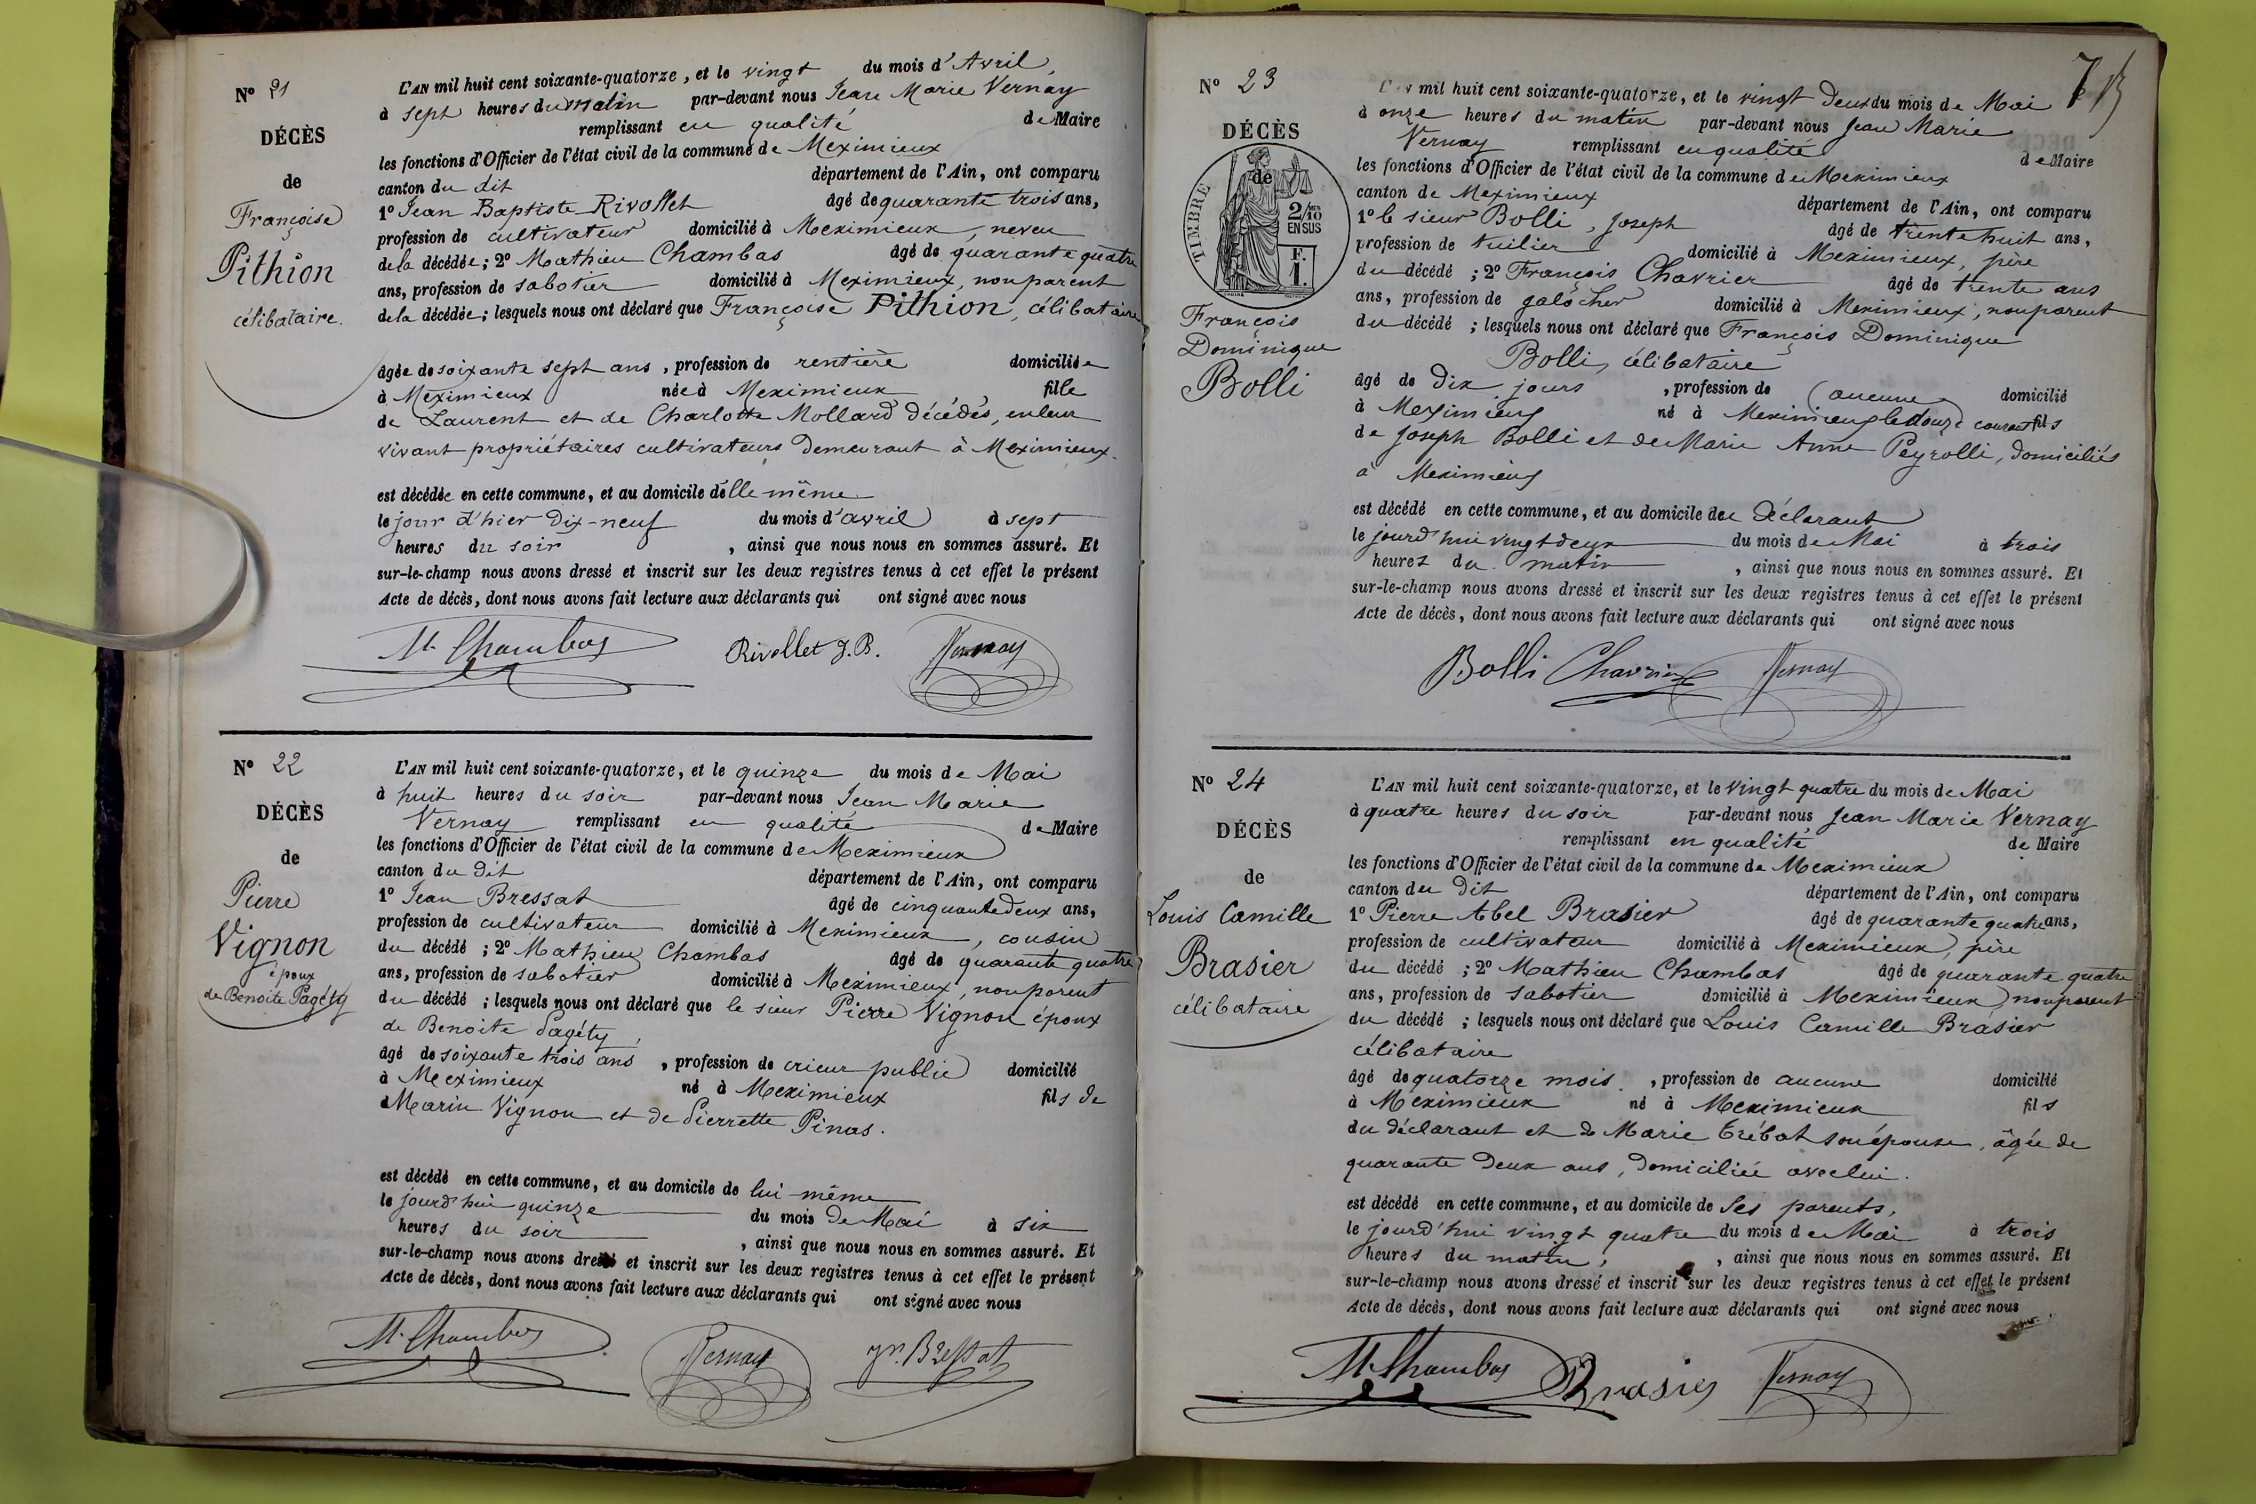 N° 21
DÉCÈS
de
Françoise
Pithion
célibataire.
L'AN mil huit cent soixante-quatorze, et le vingt du mois d'Avril,
à sept heures du matin par-devant nous Jean Marie Vernay
remplissant en qualité de Maire
les fonctions d'Officier de l'état civil de la commune de Meximieux
canton du dit département de l'Ain, ont comparu
1° Jean Baptiste Rivollet âgé de quarante trois ans,
profession de cultivateur domicilié à Meximieux, neveu
de la décédée; 2° Mathieu Chambas âgé de quarante quatre
ans, profession de sabotier domicilié à Meximieux, non parent
de la décédée; lesquels nous ont déclaré que Françoise Pithion, célibataire
âgée de soixante sept ans, profession de rentière domiciliée
à Meximieux née à Meximieux fille
de Laurent et de Charlotte Mollard décédés, en leur
vivant propriétaires cultivateurs demeurant à Meximieux.
est décédée en cette commune, et au domicile d'elle même
le jour d'hier dix-neuf du mois d'avril à sept
heures du soir, ainsi que nous nous en sommes assuré. Et
sur-le-champ nous avons dressé et inscrit sur les deux registres tenus à cet effet le présent
Acte de décès, dont nous avons fait lecture aux déclarants qui ont signé avec nous
M. Chambas Rivollet J. B. Vernay
N° 22
DÉCÈS
de
Pierre
Vignon
époux
de Benoite Pagéty
L'AN mil huit cent soixante-quatorze, et le quinze du mois de Mai
à huit heures du soir par-devant nous Jean Marie
Vernay remplissant en qualité de Maire
les fonctions d'Officier de l'état civil de la commune de Meximieux
canton du dit département de l'Ain, ont comparu
1° Jean Bressat âgé de cinquante deux ans,
profession de cultivateur domicilié à Meximieux, cousin
du décédé; 2° Mathieu Chambas âgé de quarante quatre
ans, profession de sabotier domicilié à Meximieux, non parent
du décédé; lesquels nous ont déclaré que le sieur Pierre Vignon époux
de Benoite Pagéty,
âgé de soixante trois ans, profession de crieur public domicilié
à Meximieux né à Meximieux fils de
Marin Vignon et de Pierrette Pinas.
est décédé en cette commune, et au domicile de lui-même
le jourd'hui quinze du mois de Mai à six
heures du soir, ainsi que nous nous en sommes assuré. Et
sur-le-champ nous avons dressé et inscrit sur les deux registres tenus à cet effet le présent
Acte de décès, dont nous avons fait lecture aux déclarants qui ont signé avec nous
M. Chambas Vernay Jn. Bressat
N° 23
DÉCÈS
de
TIMBRE
2/10
EN SUS
F.
1.
François
Dominique
Bolli
L'AN mil huit cent soixante-quatorze, et le vingt deux du mois de Mai
à onze heures du matin par-devant nous Jean Marie
Vernay remplissant en qualité de Maire
les fonctions d'Officier de l'état civil de la commune de Meximieux
canton de Meximieux département de l'Ain, ont comparu
1° le sieur Bolli, Joseph âgé de trente huit ans,
profession de tuilier domicilié à Meximieux, père
du décédé; 2° François Chavrier âgé de trente ans
ans, profession de galocher domicilié à Meximieux, non parent
du décédé; lesquels nous ont déclaré que François Dominique
Bolli, célibataire
âgé de dix jours, profession de (aucune) domicilié
à Meximieux né à Meximieux le douze courant fils
de Joseph Bolli et de Marie Anne Peyrolli, domiciliés
à Meximieux
est décédé en cette commune, et au domicile du déclarant
le jourd'hui vingt deux du mois de Mai à trois
heures du matin, ainsi que nous nous en sommes assuré. Et
sur-le-champ nous avons dressé et inscrit sur les deux registres tenus à cet effet le présent
Acte de décès, dont nous avons fait lecture aux déclarants qui ont signé avec nous
Bolli Chavrier Vernay
N° 24
DÉCÈS
de
Louis Camille
Brasier
célibataire
L'AN mil huit cent soixante-quatorze, et le vingt quatre du mois de Mai
à quatre heures du soir par-devant nous Jean Marie Vernay
remplissant en qualité de Maire
les fonctions d'Officier de l'état civil de la commune de Meximieux
canton du dit département de l'Ain, ont comparu
1° Pierre Abel Brasier âgé de quarante quatre ans,
profession de cultivateur domicilié à Meximieux, père
du décédé; 2° Mathieu Chambas âgé de quarante quatre
ans, profession de sabotier domicilié à Meximieux, non parent
du décédé; lesquels nous ont déclaré que Louis Camille Brasier
célibataire
âgé de quatorze mois, profession de aucune domicilié
à Meximieux né à Meximieux fils
du déclarant et de Marie Trébot son épouse, âgée de
quarante deux ans, domiciliée avec lui.
est décédé en cette commune, et au domicile de ses parents,
le jourd'hui vingt quatre du mois de Mai à trois
heures du matin, ainsi que nous nous en sommes assuré. Et
sur-le-champ nous avons dressé et inscrit sur les deux registres tenus à cet effet le présent
Acte de décès, dont nous avons fait lecture aux déclarants qui ont signé avec nous
M. Chambas Brasier Vernay